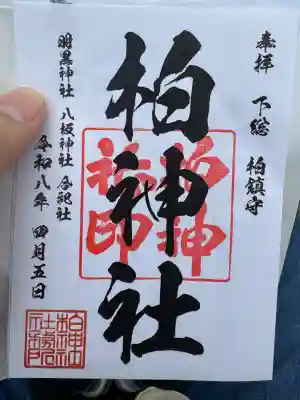 奉拝
下総 柏鎮守
柏神社
柏神
社印
羽黒神社 八坂神社 合祀社
令和八年 四月五日